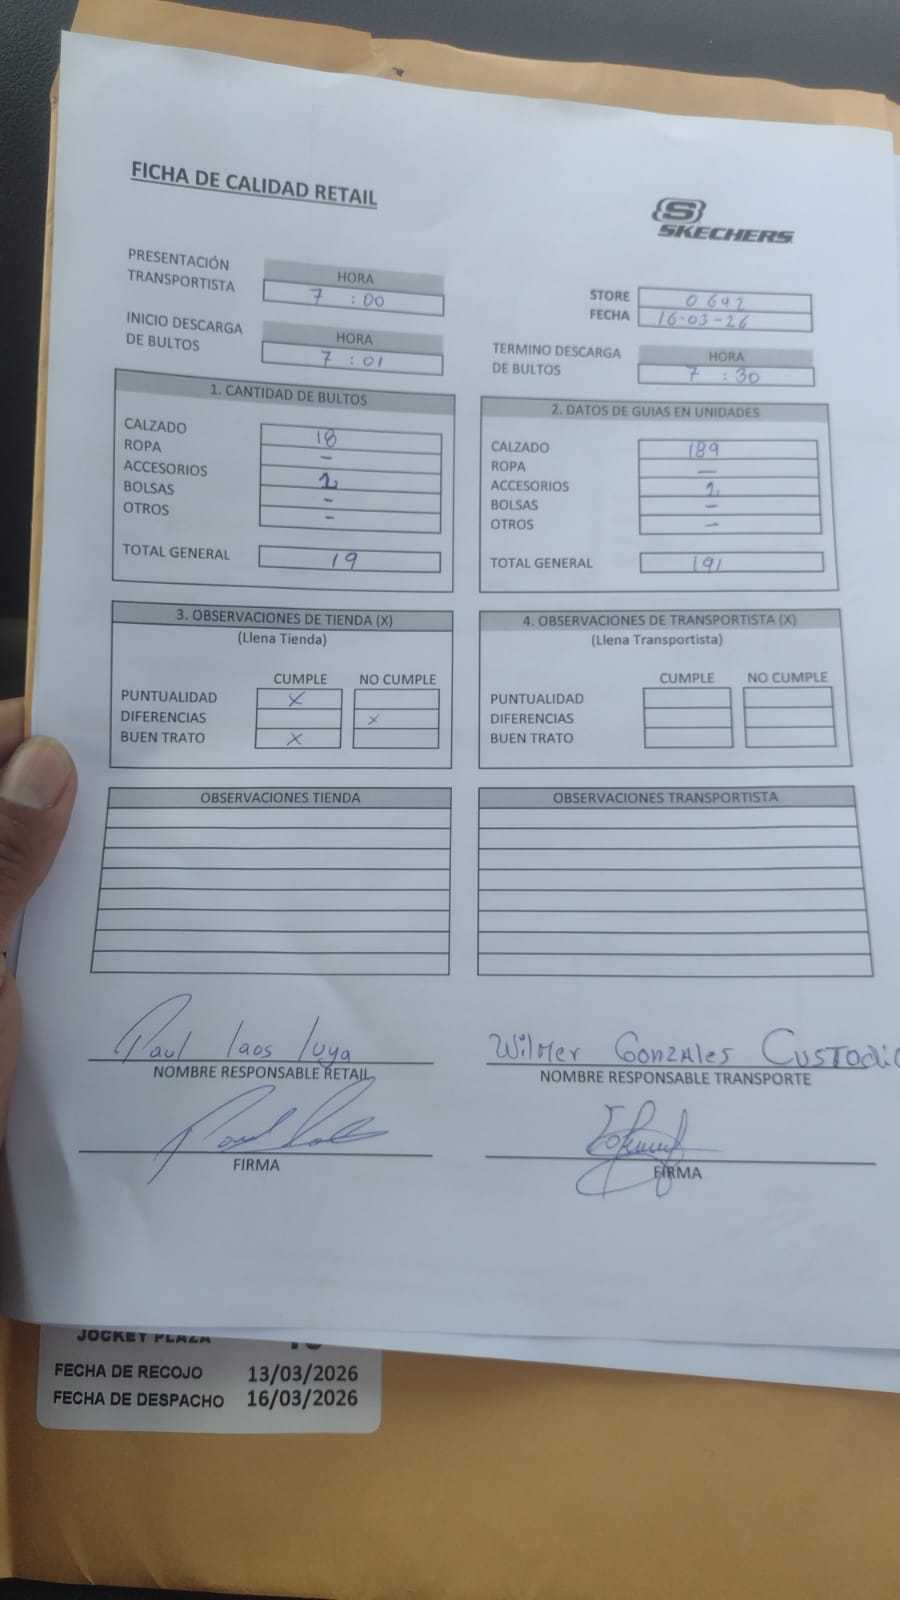 FICHA DE CALIDAD RETAIL
SKECHERS
PRESENTACIÓN TRANSPORTISTA
HORA
7 : 00
STORE 0692
FECHA 16-03-26
INICIO DESCARGA DE BULTOS
HORA
7 : 01
TERMINO DESCARGA DE BULTOS
HORA
7 : 30
1. CANTIDAD DE BULTOS
CALZADO 18
ROPA -
ACCESORIOS
BOLSAS -
OTROS -
TOTAL GENERAL 19
2. DATOS DE GUIAS EN UNIDADES
CALZADO 189
ROPA -
ACCESORIOS 2
BOLSAS -
OTROS -
TOTAL GENERAL 191
3. OBSERVACIONES DE TIENDA (X)
(Llena Tienda)
CUMPLE NO CUMPLE
PUNTUALIDAD X
DIFERENCIAS X
BUEN TRATO X
4. OBSERVACIONES DE TRANSPORTISTA (X)
(Llena Transportista)
CUMPLE NO CUMPLE
PUNTUALIDAD
DIFERENCIAS
BUEN TRATO
OBSERVACIONES TIENDA
OBSERVACIONES TRANSPORTISTA
Paul Laos Luya
NOMBRE RESPONSABLE RETAIL
Wilmer Gonzales Custodio
NOMBRE RESPONSABLE TRANSPORTE
FIRMA
FIRMA
JOCKEY PLAZA
FECHA DE RECOJO 13/03/2026
FECHA DE DESPACHO 16/03/2026